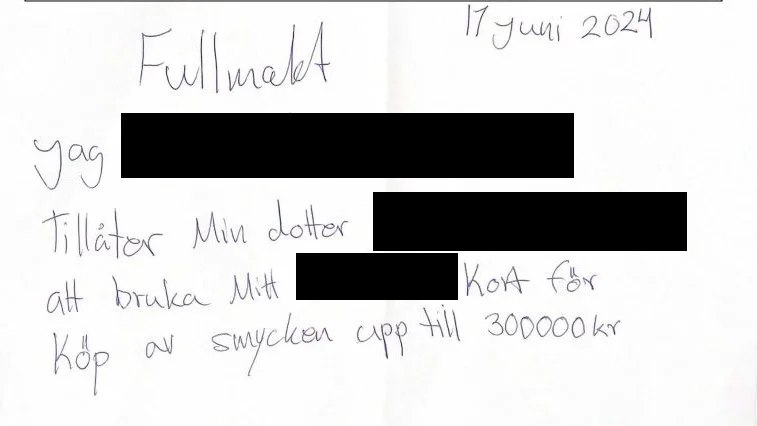 17 juni 2024
Fullmakt
yag
Tillåter Min dotter
att bruka Mitt Kort för
Köp av smycken upp till 300000 kr